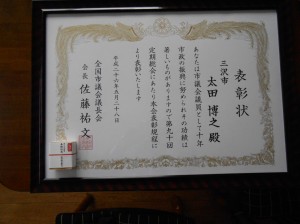 表彰状
三沢市
太田博之殿
あなたは市議会議員として十年
市政の振興に努められその功績は
著しいものがありますので第九十回
定期総会にあたり本会表彰規程に
より表彰いたします
平成二十六年五月二十八日
全国市議会議長会
会長 佐藤祐文